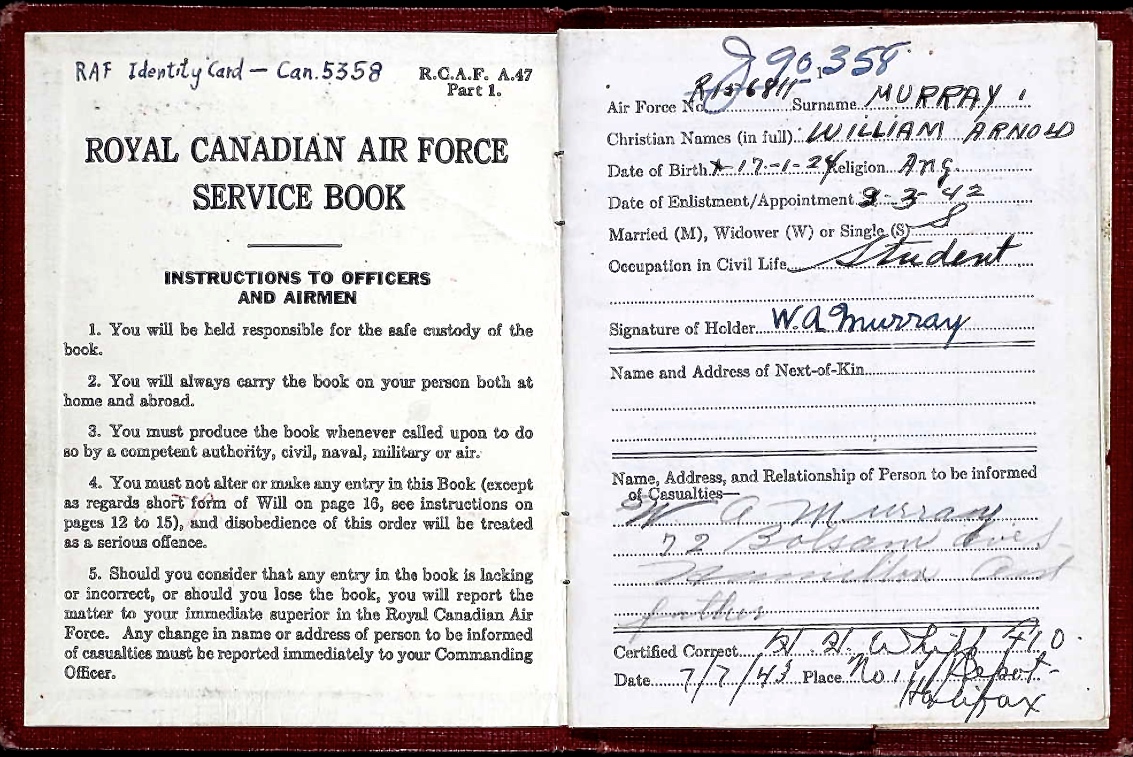 RAF Identity Card – Can. 5358
R.C.A.F. A.47
Part 1.
ROYAL CANADIAN AIR FORCE
SERVICE BOOK
INSTRUCTIONS TO OFFICERS
AND AIRMEN
1. You will be held responsible for the safe custody of the
book.
2. You will always carry the book on your person both at
home and abroad.
3. You must produce the book whenever called upon to do
so by a competent authority, civil, naval, military or air.
4. You must not alter or make any entry in this Book (except
as regards short form of Will on page 16, see instructions on
pages 12 to 15), and disobedience of this order will be treated
as a serious offence.
5. Should you consider that any entry in the book is lacking
or incorrect, or should you lose the book, you will report the
matter to your immediate superior in the Royal Canadian Air
Force. Any change in name or address of person to be informed
of casualties must be reported immediately to your Commanding
Officer.
J 90358
1
Air Force No. R156811 Surname MURRAY
Christian Names (in full) WILLIAM ARNOLD
Date of Birth 17-1-24 Religion Ang.
Date of Enlistment/Appointment 9-3-42
Married (M), Widower (W) or Single (S) S
Occupation in Civil Life Student
Signature of Holder W. A Murray
Name and Address of Next-of-Kin
Name, Address, and Relationship of Person to be informed
of Casualties—
W A Murray
72 Balsam Ave S
Hamilton Ont
father
Certified Correct H. H. F/O
Date 7/7/43 Place No 1 Y Depot
Halifax